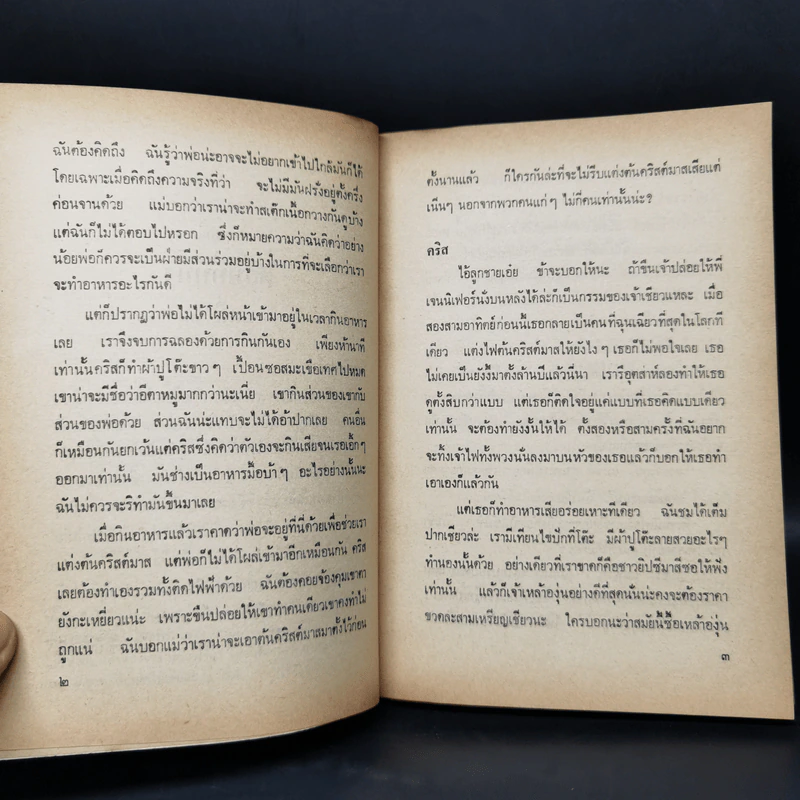 ฉันต้องคิดถึง ฉันรู้ว่าพ่อน่ะอาจจะไม่อยากเข้าไปใกล้มันก็ได้
โดยเฉพาะเมื่อคิดถึงความจริงที่ว่า จะไม่มีมันฝรั่งอยู่ตั้งครึ่ง
ค่อนจานด้วย แม่บอกว่าเราน่าจะทำสเต๊กเนื้อวางกันดูบ้าง
แต่ฉันก็ไม่ได้ตอบไปหรอก ซึ่งก็หมายความว่าฉันคิดว่าอย่าง
น้อยพ่อก็ควรจะเป็นฝ่ายมีส่วนร่วมอยู่บ้างในการที่จะเลือกว่าเรา
จะทำอาหารอะไรกันดี
แต่ก็ปรากฏว่าพ่อไม่ได้โผล่หน้าเข้ามาอยู่ในเวลากินอาหาร
เลย เราจึงจบการฉลองด้วยการกินกันเอง เพียงห้านาที
เท่านั้นคริสก็ทำผ้าปูโต๊ะขาว ๆ เปื้อนซอสมะเขือเทศไปหมด
เขาน่าจะมีชื่อว่าอีตาหมูมากกว่านะเนี่ย เขากินส่วนของเขากับ
ส่วนของพ่อด้วย ส่วนฉันน่ะแทบจะไม่ได้อ้าปากเลย คนอื่น
ก็เหมือนกันยกเว้นแต่คริสซึ่งคิดว่าตัวเองจะกินเสียจนเรอเอิ้กๆ
ออกมาเท่านั้น มันช่างเป็นอาหารมื้อบ้า ๆ อะไรอย่างนั้นนะ
ฉันไม่ควรจะริทำมันขึ้นมาเลย
เมื่อกินอาหารแล้วเราคาดว่าพ่อจะอยู่ที่นี่ด้วยเพื่อช่วยเรา
แต่งต้นคริสต์มาส แต่พ่อก็ไม่ได้โผล่เข้ามาอีกเหมือนกัน คริส
เลยต้องทำเองรวมทั้งติดไฟฟ้าด้วย ฉันต้องคอยจ้องคุมเขาตา
ยังกะเหยี่ยวแน่ะ เพราะขืนปล่อยให้เขาทำคนเดียวเขาคงทำไม่
ถูกแน่ ฉันบอกแม่ว่าเราน่าจะเอาต้นคริสต์มาสมาตั้งไว้ก่อน
๒
ตั้งนานแล้ว ก็ใครกันล่ะที่จะไม่รีบแต่งต้นคริสต์มาสเสียแต่
เนิ่นๆ นอกจากพวกคนแก่ๆ ไม่กี่คนเท่านั้นน่ะ?
คริส
ไอ้ลูกชายเอ๋ย ข้าจะบอกให้นะ ถ้าขืนเจ้าปล่อยให้พี่
เจนนิเฟอร์นั่งบนหลังได้ล่ะก็เป็นกรรมของเจ้าเชียวแหละ เมื่อ
สองสามอาทิตย์ก่อนนี้เธอกลายเป็นคนที่ฉุนเฉียวที่สุดในโลกที
เดียว แต่งไฟต้นคริสต์มาสให้ยังไงๆ เธอก็ไม่พอใจเลย เธอ
ไม่เคยเป็นยังงี้มาตั้งล้านปีแล้วนี่นา เรารึอุตส่าห์ลองทำให้เธอ
ดูตั้งสิบกว่าแบบ แต่เธอก็ติดใจอยู่แค่แบบที่เธอคิดแบบเดียว
เท่านั้น จะต้องทำยังงั้นให้ได้ ตั้งสองหรือสามครั้งที่ฉันอยาก
จะทิ้งเจ้าไฟทั้งพวงนั่นลงมาบนหัวของเธอแล้วก็บอกให้เธอทำ
เอาเองก็แล้วกัน
แต่เธอก็ทำอาหารเสียอร่อยเหาะทีเดียว ฉันชมได้เต็ม
ปากเชียวล่ะ เรามีเทียนไขปักที่โต๊ะ มีผ้าปูโต๊ะลายสวยอะไรๆ
ทำนองนั้นด้วย อย่างเดียวที่เราขาดก็คือชาวยิปซีมาสีซอให้ฟัง
เท่านั้น แล้วก็เจ้าเหล้าองุ่นอย่างดีที่สุดนั่นน่ะคงจะต้องราคา
ขวดละสามเหรียญเชียวนะ ใครบอกนะว่าสมัยนี้ซื้อเหล้าองุ่น
๓